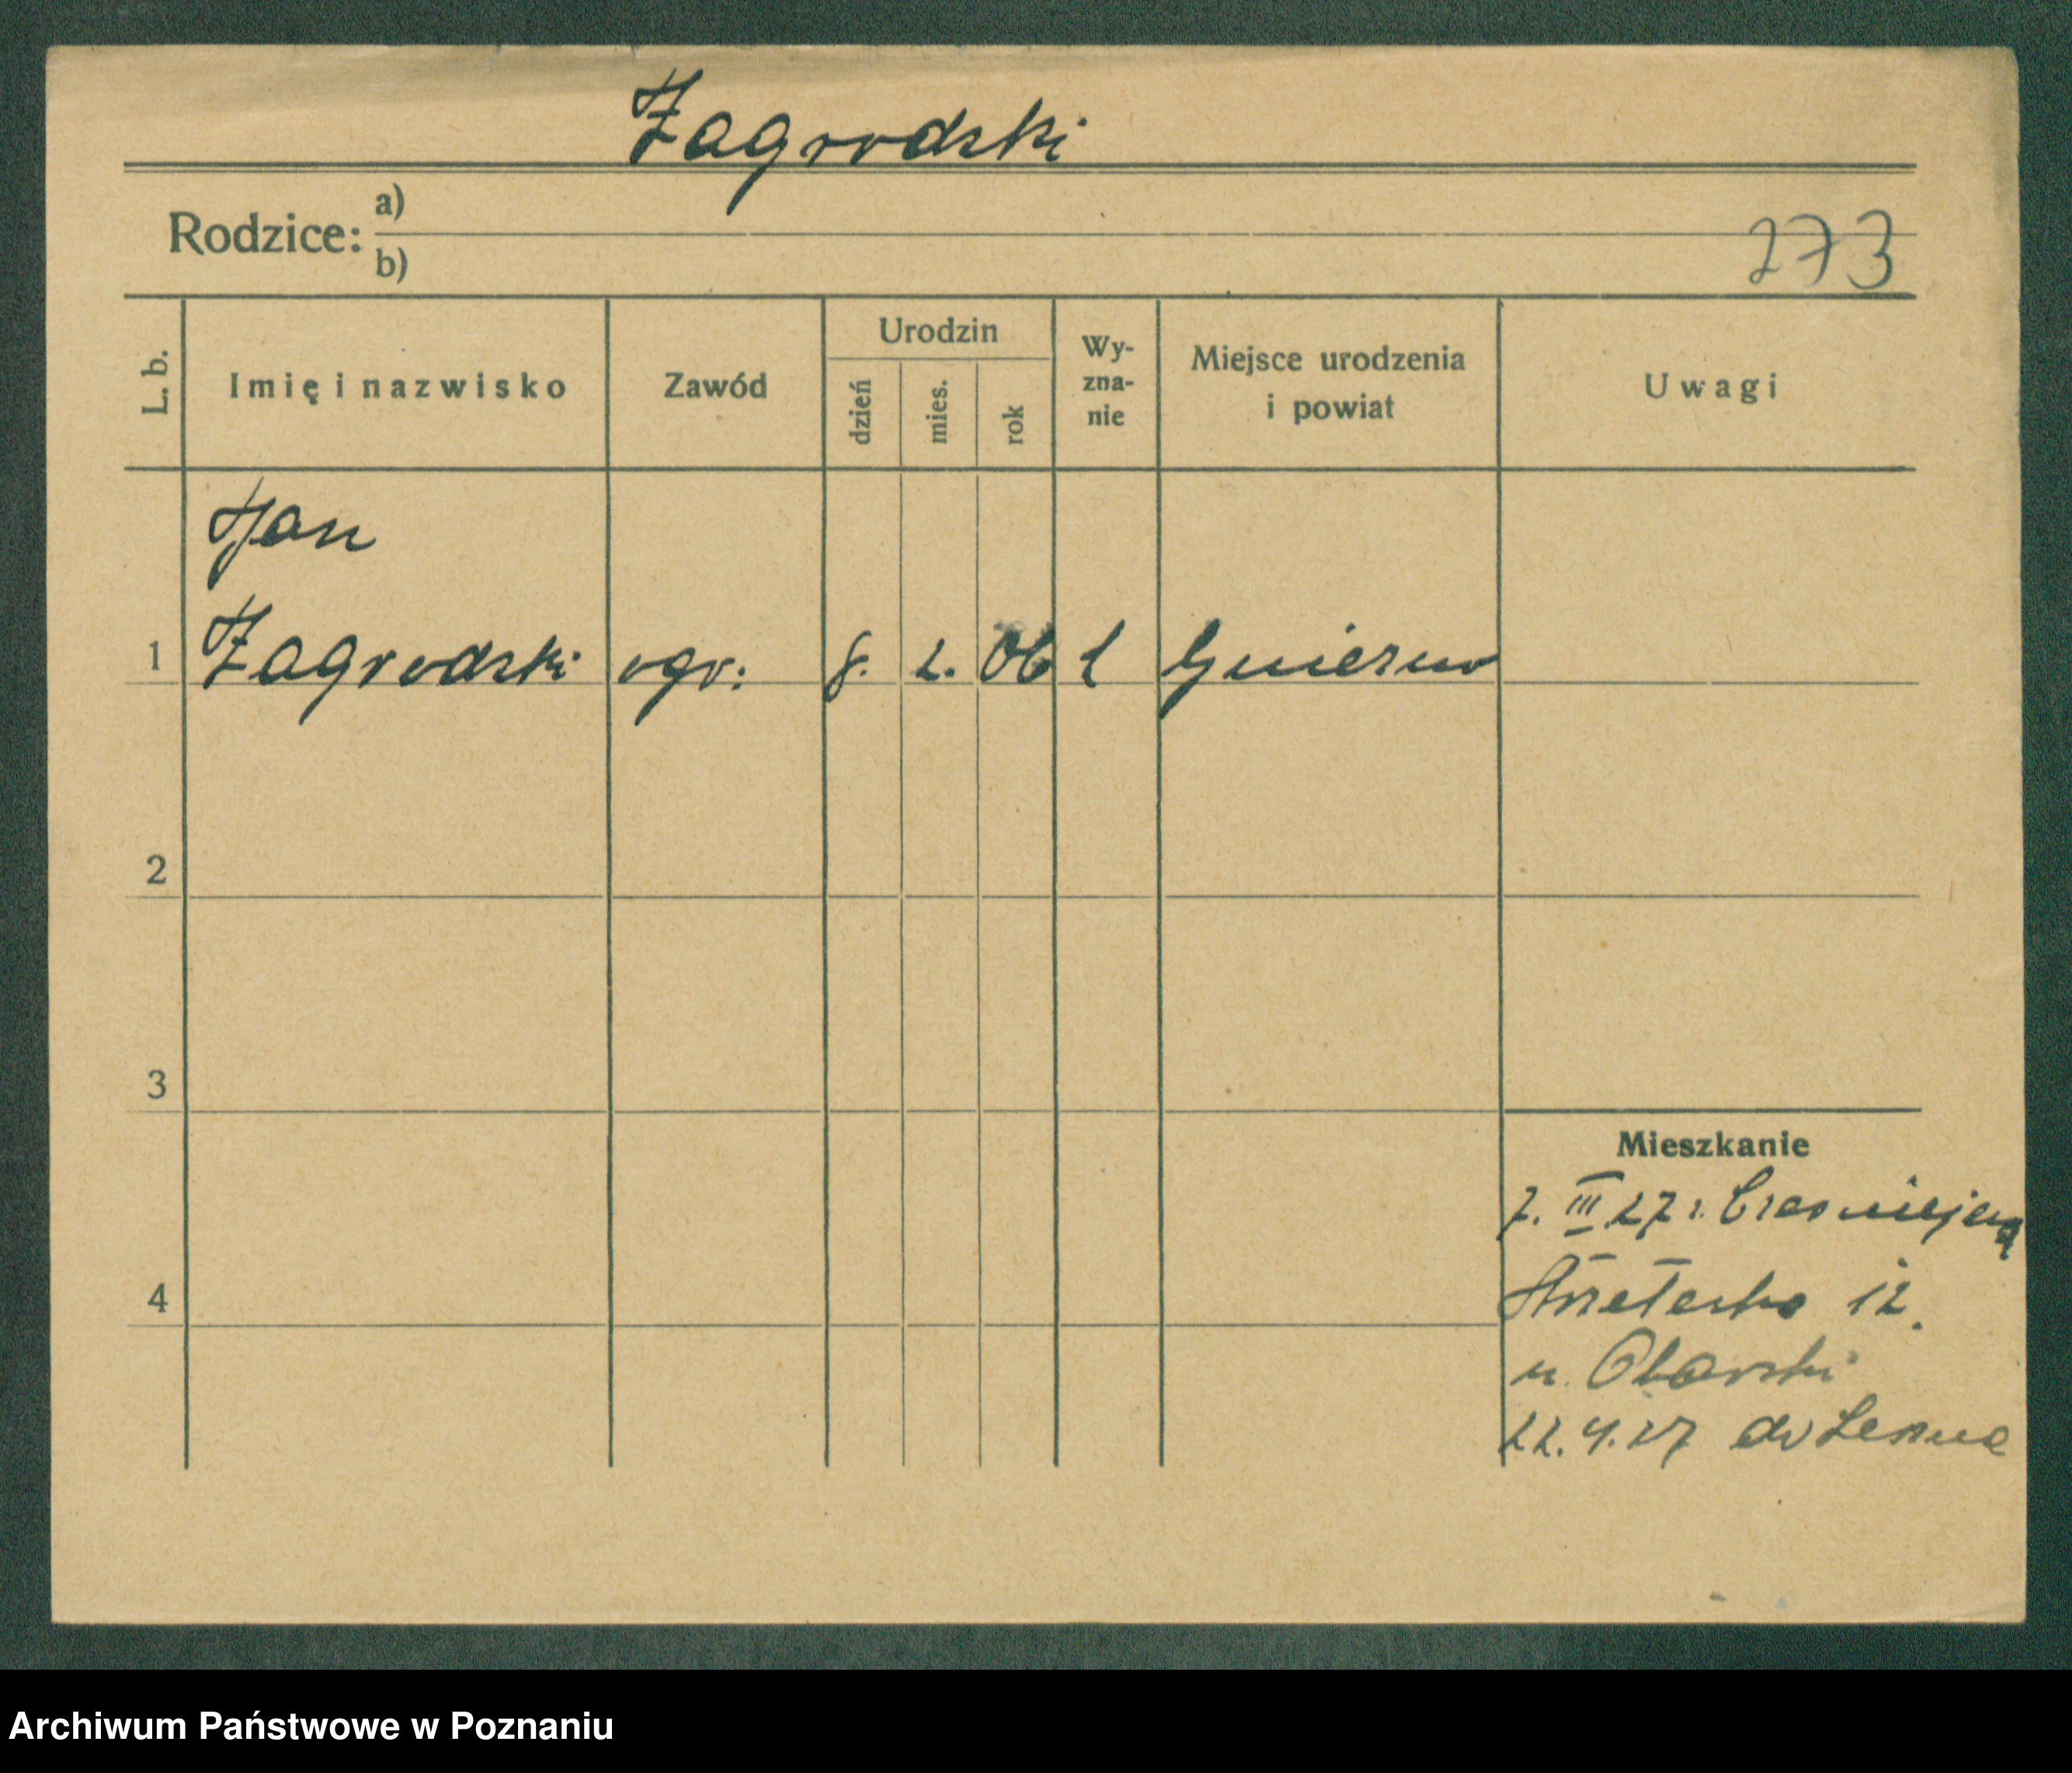 Zagrodski
Rodzice: a)
b)
273
L. b.
Imię i nazwisko
Zawód
Urodzin
dzień
mies.
rok
Wy-
zna-
nie
Miejsce urodzenia
i powiat
Uwagi
Jan
1 Zagrodski ogr. 8. 2. 06 Gniezno
2
3
4
Mieszkanie
7. III 27 z. Czerniejewa
12.
u.
22.4.27 do Leszna
Archiwum Państwowe w Poznaniu